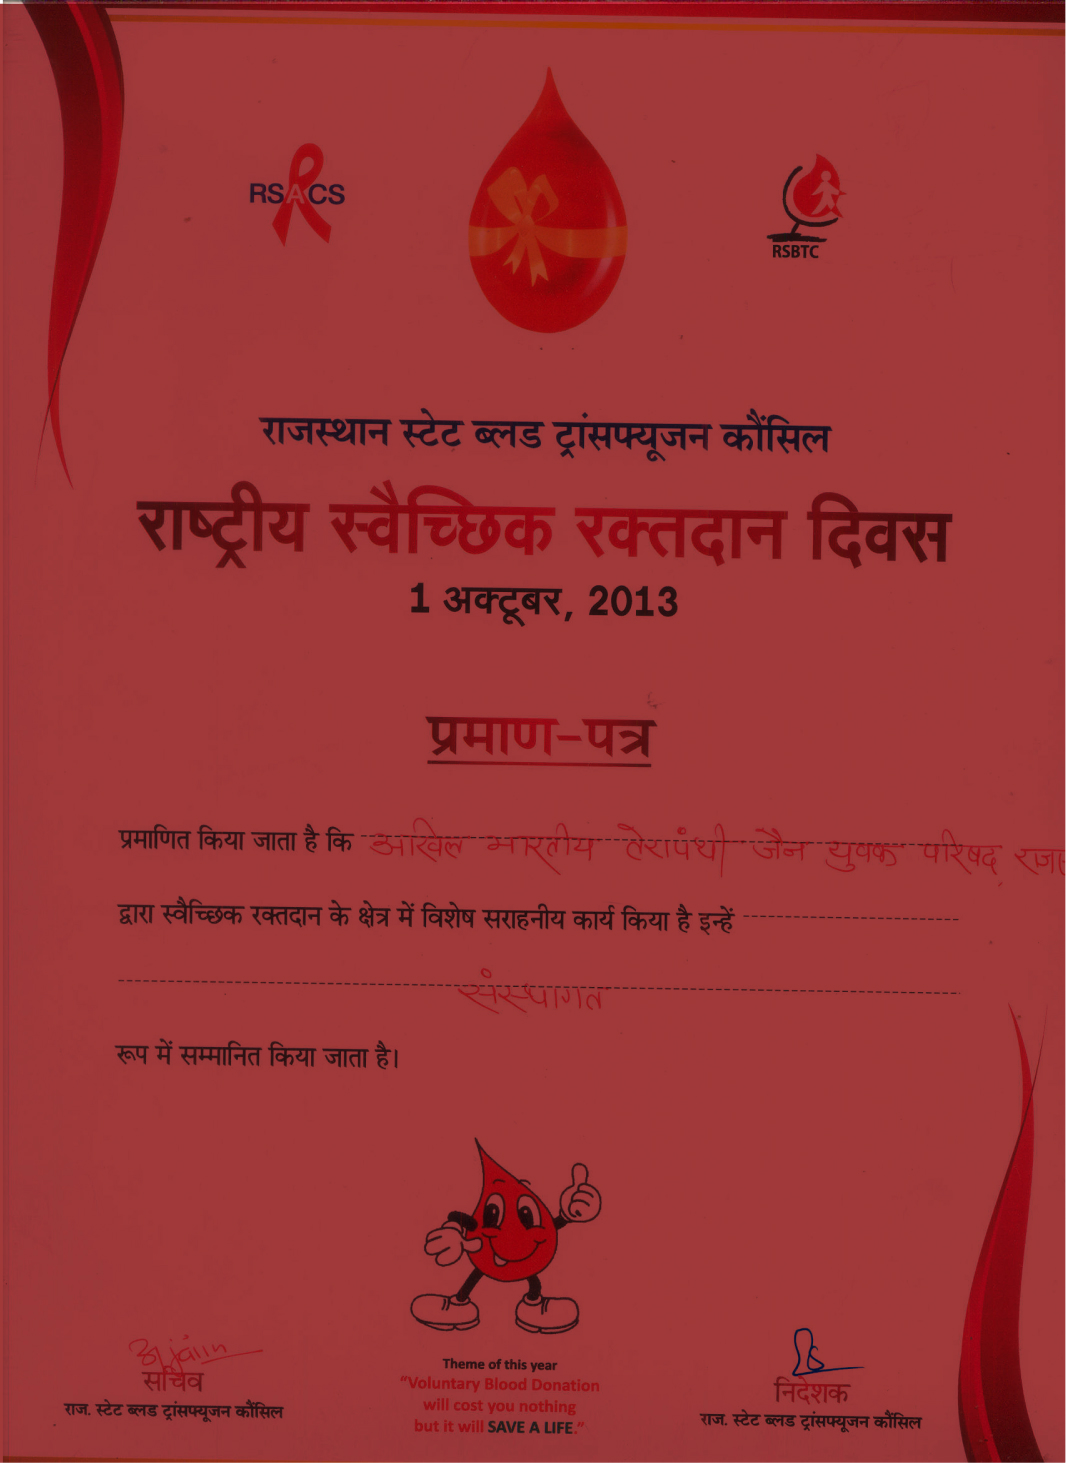 RSACS
RSBTC
राजस्थान स्टेट ब्लड ट्रांसफ्यूजन कौंसिल
राष्ट्रीय स्वैच्छिक रक्तदान दिवस
1 अक्टूबर, 2013
प्रमाण-पत्र
प्रमाणित किया जाता है कि अखिल भारतीय तेरापंथी जैन युवक परिषद्
द्वारा स्वैच्छिक रक्तदान के क्षेत्र में विशेष सराहनीय कार्य किया है इन्हें
संस्थागत
रूप में सम्मानित किया जाता है।
सचिव
राज. स्टेट ब्लड ट्रांसफ्यूजन कौंसिल
Theme of this year
"Voluntary Blood Donation
will cost you nothing
but it will SAVE A LIFE."
निदेशक
राज. स्टेट ब्लड ट्रांसफ्यूजन कौंसिल